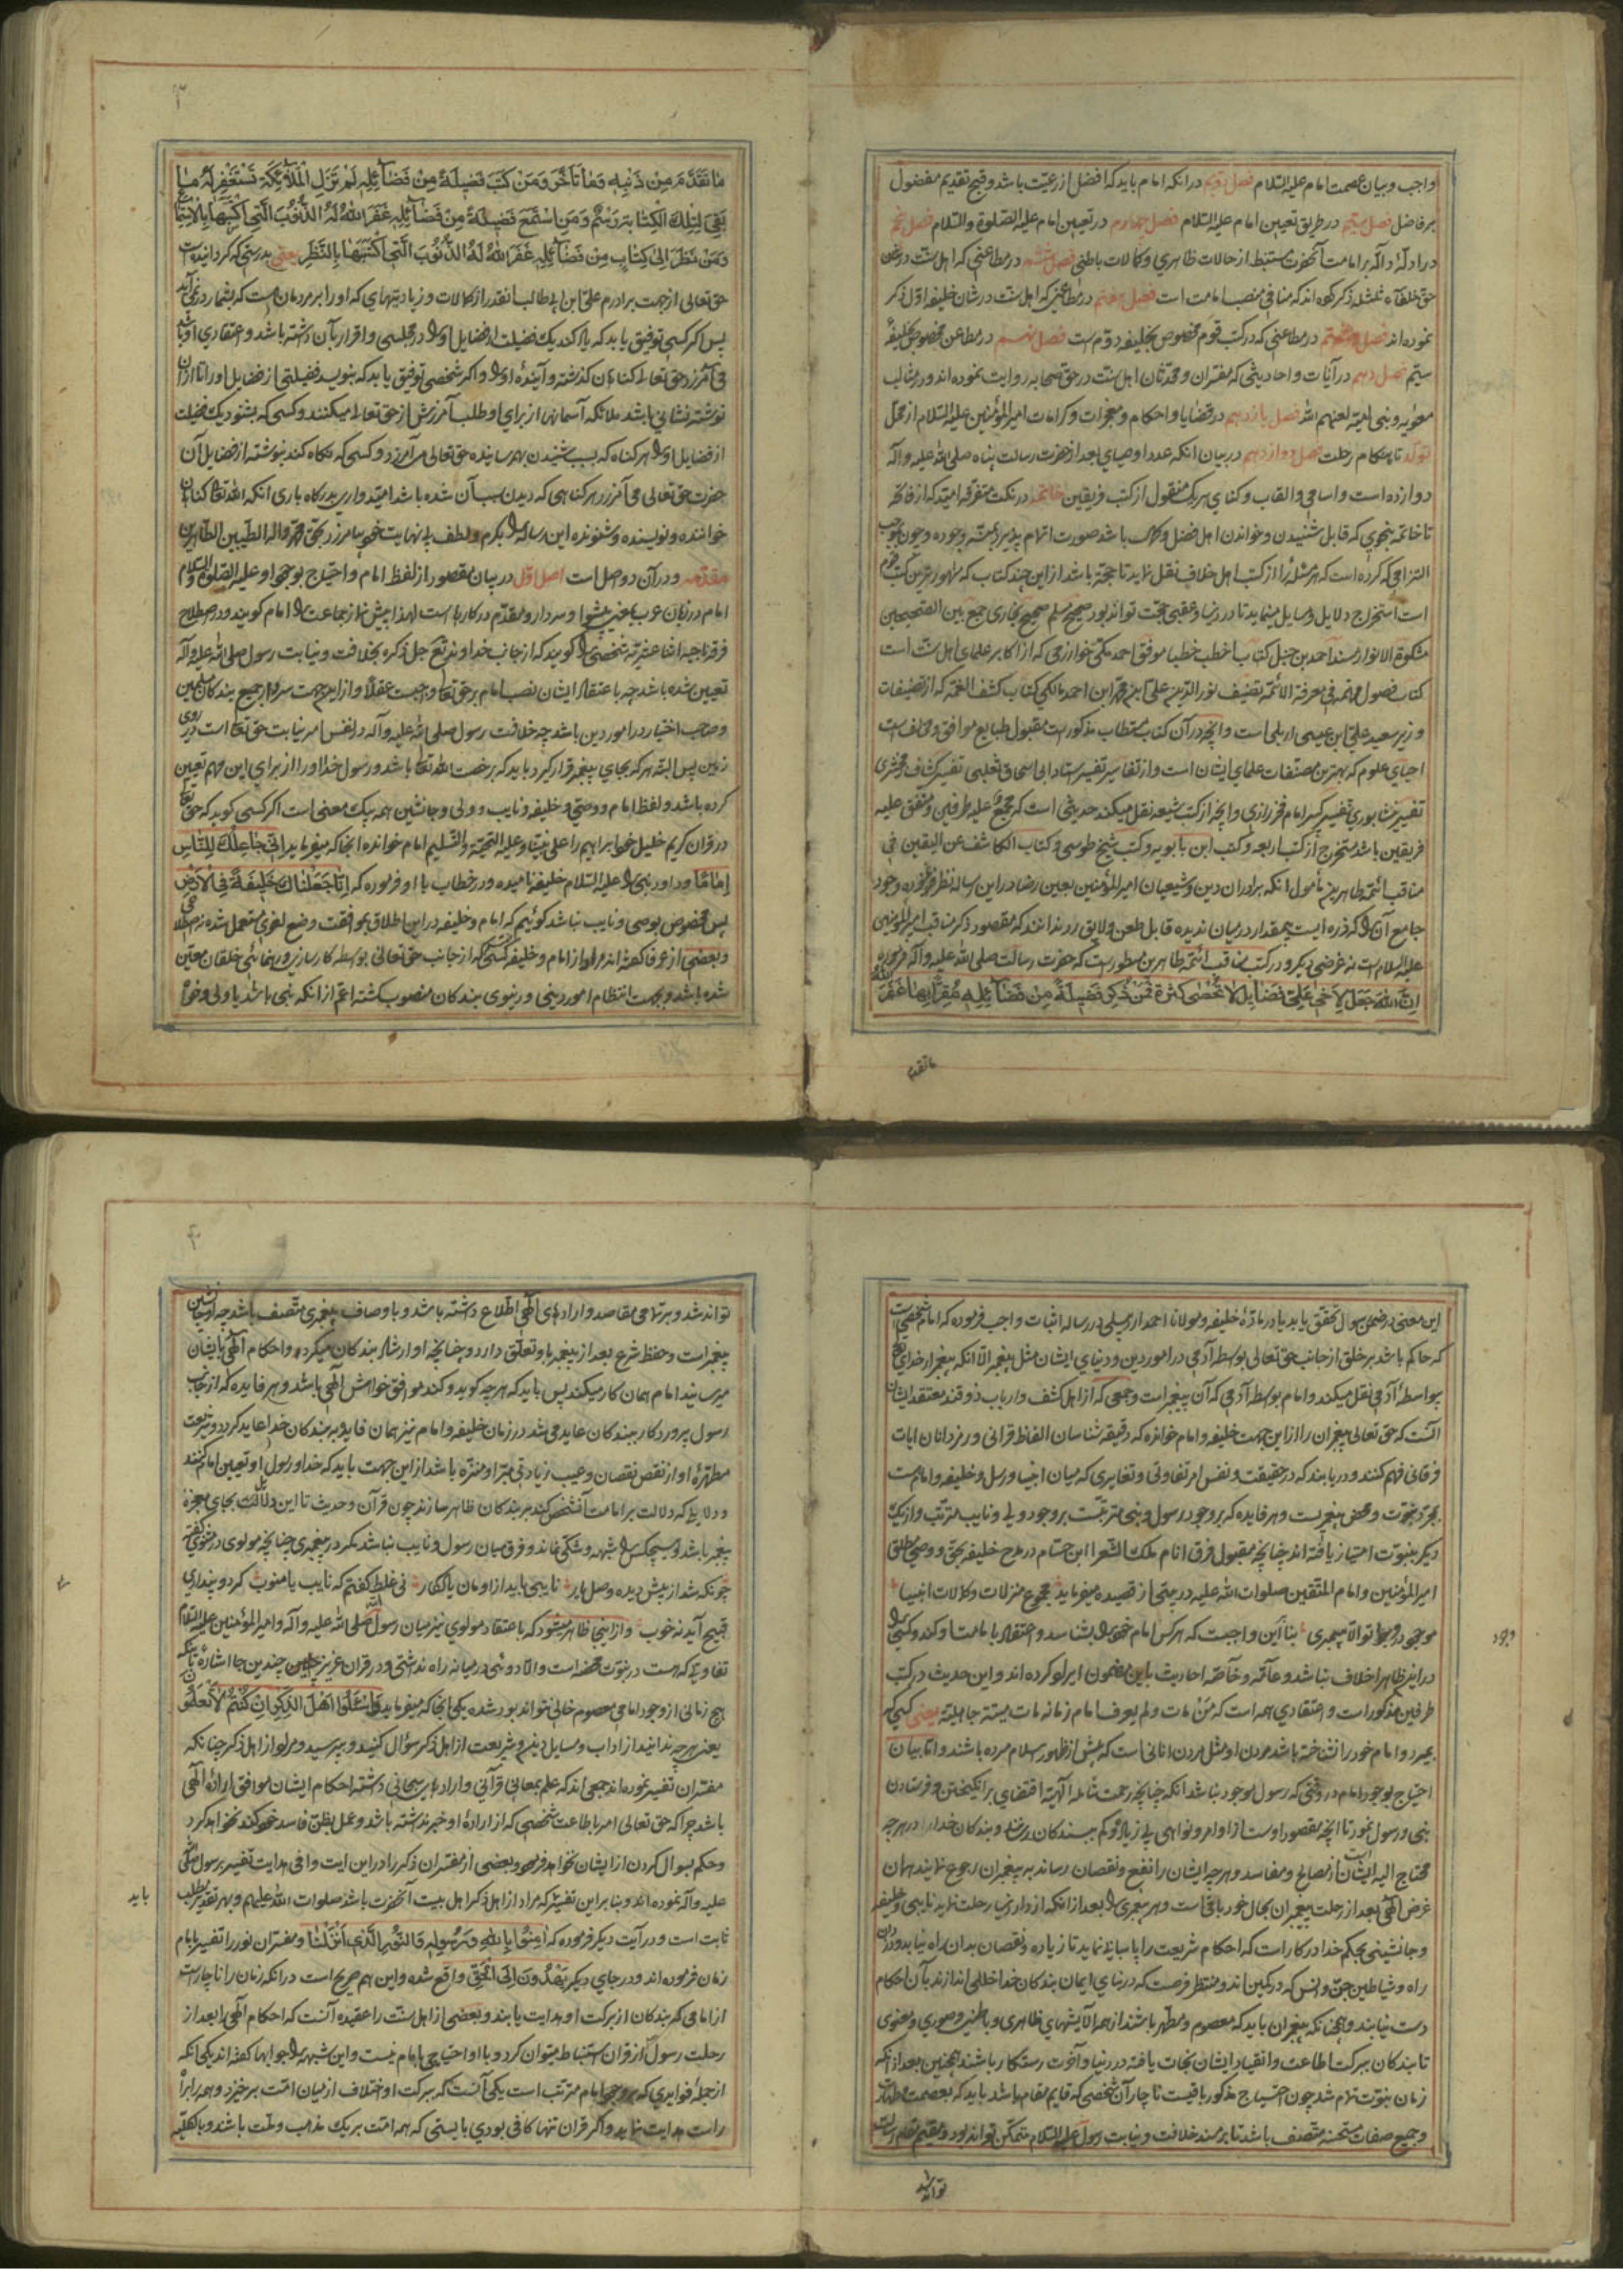 واجب و بیان عصمت امام علیه السلام فصل دویم در آنکه امام باید که افضل از رعیت باشد و قبح تقدیم مفضول
بر فاضل فصل سیم در طریق تعیین امام علیه السلام فصل چهارم در تعیین امام علیه الصلوة والسلام فصل پنجم
در ادله داله بر امامت آنحضرت مستنبط از حالات ظاهری و کمالات باطنی فصل ششم در مطاعنی که اهل سنت در
حق خلفاء ثلثه ذکر کرده اند که منافی منصب امامت است فصل هفتم در مطاعنی که اهل سنت در شان خلیفه اول ذکر
نموده اند فصل هشتم در مطاعنی که در کتب قوم مخصوص بخلیفه دوم است فصل نهم در مطاعن مخصوص بخلیفهٔ
سیم فصل دهم در آیات و احادیثی که مفسران و محدثان اهل سنت در حق صحابه روایت نموده اند و در مثالب
معویه و بنی امیه لعنهم الله فصل یازدهم در قضایا و احکام و معجزات و کرامات امیرالمؤمنین علیه السلام از محل
تولد تا هنکام رحلت فصل دوازدهم در بیان آنکه عدد اوصیای بعد از حضرت رسالت پناه صلی الله علیه وآله
دوازده است و اسامی و القاب و کنای هر یک منقول از کتب فریقین خاتمه در نکت متفرقه امید که از فاتحه
تا خاتمه بنحوی که قابل شنیدن و خواندن اهل فضل و کمال باشد صورت اتمام پذیرد بمنه وجوده و چون
التزامی که کرده است که هر مسئله را از کتب اهل خلاف نقل نماید تا حجة باشد از این چند کتاب که مشهورترین کتب
است استخراج دلایل و مسایل مینماید تا در دنیا و عقبی حجت تواند بود صحیح مسلم صحیح بخاری جمع بین الصحیحین
مشکوة الانوار مسند احمد بن حنبل کتاب اخطب خطبا موفق احمد مکی خوارزمی که از اکابر علمای اهل سنت است
کتاب فصول مهمه فی معرفة الائمه تصنیف نورالدین علی بن محمد ابن احمد مالکی کتاب کشف الغمه که از تصنیفات
وزیر سعید علی ابن عیسی اربلی است و آنچه در آن کتاب مستطاب مذکور است مقبول طبایع موافق و مخالف است
احیای علوم که بهترین مصنفات علمای ایشان است و از تفاسیر تفسیر استاد ابی اسحاق ثعلبی تفسیر کشاف زمخشری
تفسیر نیشابوری تفسیر کبیر امام فخر رازی و آنچه از کتب شیعه نقل میکند حدیثی است که مجمع علیه طرفین و متفق علیه
فریقین باشد مستخرج از کتب اربعه و کتب ابن بابویه و کتب شیخ طوسی و کتاب الکاشف عن الیقین فی
مناقب ائمه طاهرین مأمول آنکه برادران دین و شیعیان امیرالمؤمنین بعین رضا در این رساله نظر فرموده وجود
جامع آن را که ذره ایست بیمقدار در میان ندیده قابل طعن و لایق رد ندانند که مقصود ذکر مناقب امیرالمؤمنین
علیه السلام است نه غرضی دیکر و در کتب مناقب ائمه طاهرین مسطور است که حضرت رسالت صلی الله علیه وآله فرموده
اِنَّ اللهَ جَعَلَ لِاَخی عَلِیٍّ فَضَایِلَ لا تُحْصی کَثْرَةً فَمَنْ ذَکَرَ فَضِیلَةً مِنْ فَضَآئِلِهِ مُقِرّاً بِها غَفَرَ اللهُ
ما تقدم
۳
ما تَقَدَّمَ مِنْ ذَنْبِهِ وَمَا تَأَخَّرَ وَمَنْ کَتَبَ فَضِیلَةً مِنْ فَضَآئِلِهِ لَمْ تَزَلِ الْمَلآئِکَةُ تَسْتَغْفِرُ لَهُ مٰا
بَقِیَ لِتِلْکَ الْکِتٰابَةِ رَسْمٌ وَمَنِ اسْتَمَعَ فَضِیلَةً مِنْ فَضَآئِلِهِ غَفَرَ اللهُ لَهُ الذُّنُوبَ الَّتِی اکْتَسَبَهٰا بِالْاِسْتِمٰاعِ
وَمَنْ نَظَرَ اِلیٰ کِتٰابٍ مِنْ فَضَآئِلِهِ غَفَرَ اللهُ لَهُ الذُّنُوبَ الَّتِی اکْتَسَبَهٰا بِالنَّظَرِ یعنی بدرستی که کردانیده است
حق تعالی از جهت برادرم علی ابن ابی طالب آنقدر از کمالات و زیادتیهای که او را بر مردمان هست که بشمار در نمی آید
پس اکر کسی توفیق یابد که یاد کند یک فضیلت از فضایل او را در مجلسی و اقرار بآن داشته باشد و اعتقاد
می آمرزد حق تعالی کناهان کذشته و آیندهٔ او را و اکر شخصی توفیق یابد که بنویسد فضیلتی از فضایل او را تا از آن
نوشته نشانی باشد ملائکه آسمانها از برای او طلب آمرزش از حق تعالی میکنند و کسی که بشنود یک فضیلت
از فضایل او را هر کناه که بسبب شنیدن بهم رسانیده حق تعالی می آمرزد و کسی که نکاه کند بنوشته از فضایل آن
حضرت حق تعالی می آمرزد هر کناهی که دیدن سبب آن شده باشد امیدواری بدرکاه باری آنکه الله تعالی کناهان
خواننده و نویسنده و شنونده این رساله را بکرم و لطف بی نهایت خود بیامرزد بحق محمد وآله الطیبین الطاهرین
مقدمه و در آن دو اصل است اصل اول در بیان مقصود از لفظ امام و احتیاج بوجود او علیه الصلوة والسلام
امام در زبان عرب بمعنی پیشوا و سردار و مقدم در کارها است لهذا پیش نماز جماعت را امام کویند و در اصطلاح
فرقه ناجیه اثنا عشریه شخصی را کویند که از جانب خداوند تعالی جل ذکره بخلافت و نیابت رسول صلی الله علیه وآله
تعیین شده باشد چه باعتقاد ایشان نصب امام بر حق تعالی واجبست عقلاً و از این جهت
و صاحب اختیار در امور دین باشد چه خلافت رسول صلی الله علیه وآله در نفس امر نیابت حق تعالی است در روی
زمین پس البته هر که بجای پیغمبر قرار کیرد باید که برخصت الله تعالی باشد و رسول خدا او را از برای این مهم تعیین
کرده باشد و لفظ امام و وصی و خلیفه و نایب و ولی و جانشین همه بیک معنی است اکر کسی کوید که حق تعالی
در قرآن کریم خلیل خود ابراهیم را علی نبینا وعلیه التحیة والتسلیم امام خوانده آنجا که میفرماید اِنّی جٰاعِلُکَ لِلنّٰاسِ
اِمٰامًا و داود نبی را علیه السلام خلیفه نامیده و در خطاب با او فرموده که اِنّٰا جَعَلْنٰاکَ خَلِیفَةً فِی الْاَرْضِ
پس مخصوص بوصی و نایب نباشد کوئیم که امام و خلیفه در این اطلاق بموافقت وضع لغوی مستعمل شده نه اصطلاحی
و بعضی از عرفا کفته اند مراد از امام و خلیفه کسی است که از جانب حق تعالی بواسطه کارسازی و رهنمائی خلقان معین
شده باشد و بجهت انتظام امور دینی و دنیوی بندکان منصوب کشته اعم از آنکه نبی باشد یا ولی و خواه
این معنی در ضمن رسول تحقق یابد یا در مادهٔ خلیفه و مولانا احمد اردبیلی در رساله اثبات واجب فرموده که امام شخصی است
که حاکم باشد بر خلق از جانب حق تعالی بواسطه آدمی در امور دین و دنیای ایشان مثل پیغمبر الا آنکه پیغمبر از خدای تعالی
بیواسطهٔ آدمی نقل میکند و امام بواسطه آدمی که آن پیغمبر است و جمعی که از اهل کشف و ارباب ذوقند معتقد ایشان
آنست که حق تعالی پیغمبران را از این جهت خلیفه و امام خوانده که دقیقه شناسان الفاظ قرآنی و رمزدانان آیات
فرقانی فهم کنند و دریابند که در حقیقت و نفس امر تفاوتی و تغایری که میان انبیا و رسل و خلیفه و امام است
بمجرد نبوت و محض پیغمبریست و هر فایده که بر وجود رسول و نبی مترتبست بر وجود ولی و نایب مترتب و از یک
دیکر بنبوت امتیاز یافته اند چنانچه مقبول فرق انام ملک الشعرا ابن حسام در مدح خلیفه بحق و وصی مطلق
امیرالمؤمنین و امام المتقین صلوات الله علیه در بیتی از قصیده میفرماید مجموع منزلات و کمالات انبیا
موجود در وجود تو الا پیمبری بنابراین واجبست که هر کس امام خود را بشناسد و اعتقاد بامامت او کند و کسی را
در این ظاهرا خلاف نباشد و عامه و خاصه احادیث باین مضمون ایراد کرده اند و این حدیث در کتب
طرفین مذکور است و اعتقادی همه است که من مات ولم یعرف امام زمانه مات میتة جاهلیة یعنی کسی که
بمیرد و امام خود را نشناخته باشد مردن او مثل مردن آنانی است که پیش از ظهور اسلام مرده باشند و اما بیان
احتیاج بوجود امام در وقتی که رسول موجود نباشد آنکه چنانچه رحمت شامله الهیه اقتضای برانکیختن و فرستادن
نبی و رسول نمود تا آنچه مقصود اوست از اوامر و نواهی بی زیاده و کم ببندکان رساند و بندکان خدا را در هر چه
محتاج الیه ایشان است از مصالح و مفاسد و هر چه ایشان را نفع و نقصان رساند به پیغمبران رجوع نمایند همان
غرض الهی بعد از رحلت پیغمبران بحال خود باقی است و هر پیغمبری را بعد از آنکه از دار دنیا رحلت نماید نایبی و خلیفه
و جانشینی بحکم خدا در کار است که احکام شریعت را پاسبانی نماید تا زیاده و نقصان بدان راه نیابد و دزدان
راه و شیاطین جن و انس که در کمین اند و منتظر فرصت که در بنای ایمان بندکان خدا خللی اندازند بآن احکام
دست نیابند و همچنانکه پیغمبران باید که معصوم و مطهر باشند از همه آلایشهای ظاهری و باطنی و صوری و معنوی
تا بندکان ببرکت اطاعت و انقیاد ایشان نجات یافته در دنیا و آخرت رستکار باشند همچنین بعد از آنکه
زمان نبوت تمام شد چون احتیاج مذکور باقیست ناچار آن شخصی که قایم مقام باشد باید که بعصمت و طهارت
و جمیع صفات مستحسنه متصف باشد تا بر مسند خلافت و نیابت رسول علیه السلام متمکن تواند بود و مقیم مقام رسالت
تواند شد
وجود
۴
تواند شد و بر تمامی مقاصد و ارادهای الهی اطلاع داشته باشد و باوصاف پیغمبری متصف باشد چه او جانشین
پیغمبر است و حفظ شرع بعد از پیغمبر باو تعلق دارد و چنانچه او ارشاد بندکان میکرد و احکام الهی بایشان
میرسانید امام همان کار میکند پس باید که هر چه کوید و کند موافق خواهش الهی باشد و هر فایده که از جانب
رسول پروردکار ببندکان عاید میشد در زمان خلیفه و امام نیز همان فایده به بندکان خدا عاید کردد و شریعت
مطهرهٔ او از نقص نقصان و عیب زیادتی مبرا و منزه باشد از این جهت باید که خدا و رسول او تعیین امام کنند
و دلایلی که دلالت بر امامت آنشخص کند بر بندکان ظاهر سازند چون قرآن و حدیث تا این دلالت بجای معجزه
پیغمبر باشد و هیچکس را شبهه و شکی نماند و فرق میان رسول و نایب نباشد مکر در پیغمبری چنانچه مولوی در مثنوی کفته
چونکه شد از پیش دیده وصل یار نایبی باید از او مان یادکار نی غلط کفتم که نایب یا منوب کر دو پنداری
قبیح آید نه خوب و از اینجا ظاهر میشود که باعتقاد مولوی نیز میان رسول الله صلی الله علیه وآله و امیرالمؤمنین علیه السلام
تفاوتی که هست در نبوت محضه است والا دوئی در میانه راه نداشتی و در قرآن عزیز چندین جا اشاره بآنکه
هیچ زمانی از وجود امامی معصوم خالی نتواند بود شده یکی آنجا که میفرماید فَاسْئَلُوا اَهْلَ الذِّکْرِ اِنْ کُنْتُمْ لاٰ تَعْلَمُونَ
یعنی هر چه ندانید از آداب و مسایل دینی و شریعت از اهل ذکر سؤال کنید و بپرسید و مراد از اهل ذکر چنانکه
مفسران تفسیر نموده اند جمعی اند که علم بمعانی قرآنی و ارادهای سبحانی داشته احکام ایشان موافق ارادهٔ الهی
باشد چرا که حق تعالی امر باطاعت شخصی که از ارادهٔ او خبر نداشته باشد و عمل بظن فاسد خود کند نخواهد کرد
و حکم بسوال کردن از ایشان نخواهد فرمود و بعضی از مفسران ذکر را در این آیت وافی هدایت تفسیر برسول صلی الله
علیه وآله نموده اند و بنابراین تفسیر که مراد از اهل ذکر اهل بیت آنحضرت باشد صلوات الله علیهم و بهر تقدیر مطلب
ثابت است و در آیت دیکر فرموده که اٰمِنُوا بِاللهِ وَرَسُولِهِ وَالنُّورِ الَّذِی اَنْزَلْنٰا و مفسران نور را تفسیر بامام
زمان فرموده اند و در جای دیکر یَهْدُونَ اِلَی الْحَقِّ واقع شده و این هم صریح است در آنکه زمان را ناچار است
از امامی که بندکان از برکت او هدایت یابند و بعضی از اهل سنت را عقیده آنست که احکام الهی را بعد از
رحلت رسول از قرآن استنباط میتوان کرد و با او احتیاجی بامام نیست و این شبهه را جوابها کفته اند یکی آنکه
از جمله فوایدی که بر وجود امام مترتب است یکی آنست که ببرکت او اختلاف از میان امت برخیزد و همه را براه
راست هدایت نماید و اکر قرآن تنها کافی بودی بایستی که همه امت بر یک مذهب و ملت باشند و بالکلیه
باید